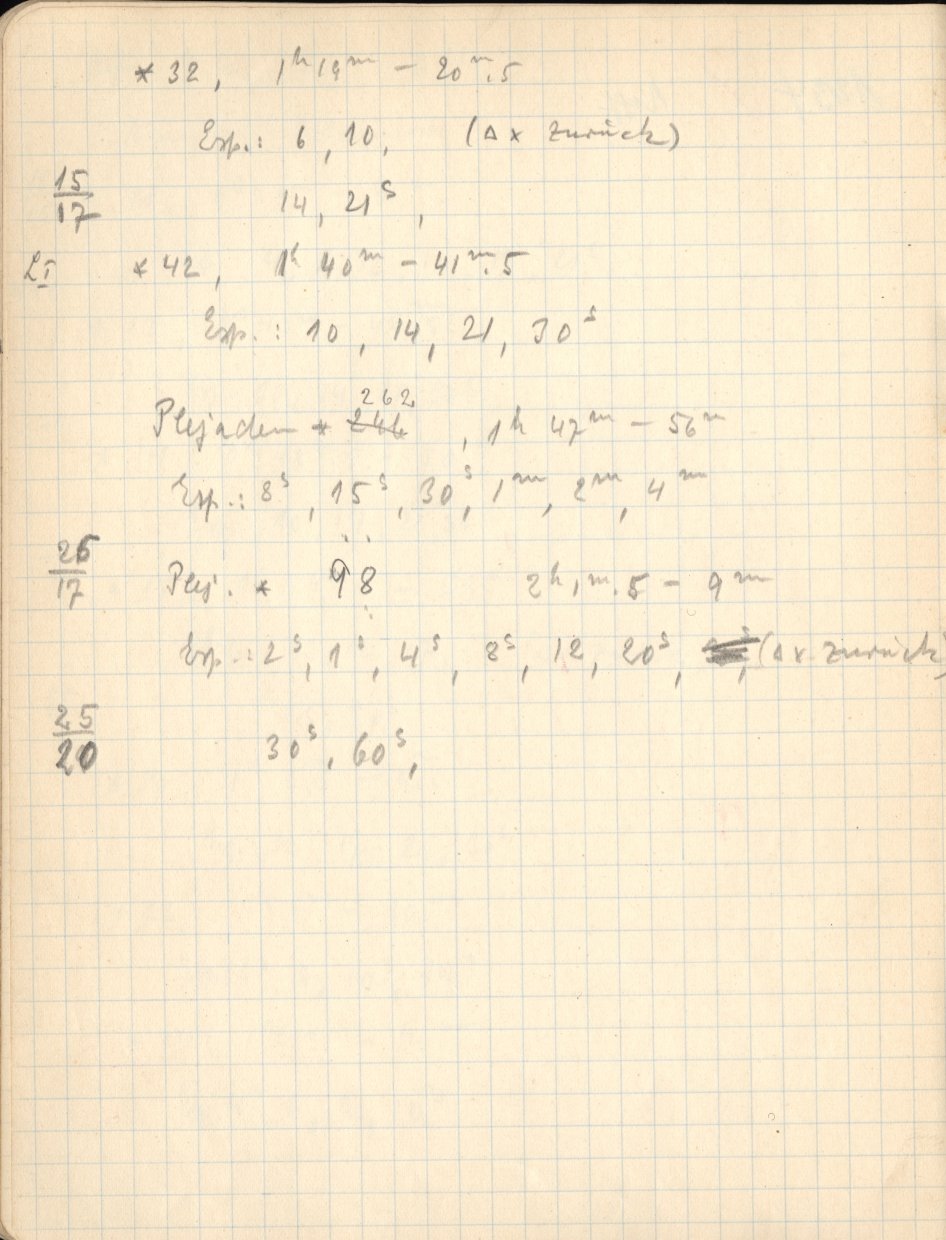 * 32, 1ʰ 19ᵐ – 20ᵐ.5
Exp.: 6, 10, (Δ x zurück)
15/17 14, 21ˢ,
LI * 42, 1ʰ 40ᵐ – 41ᵐ.5
Exp.: 10, 14, 21, 30ˢ
262
Plejaden * 246, 1ʰ 47ᵐ – 56ᵐ
Exp.: 8ˢ, 15ˢ, 30ˢ, 1ᵐ, 2ᵐ, 4ᵐ
26/17 Plej. * 98 2ʰ 1ᵐ.5 – 9ᵐ
Exp.: 2ˢ, 1ˢ, 4ˢ, 8ˢ, 12, 20ˢ, (Δ x zurück)
25/20 30ˢ, 60ˢ,